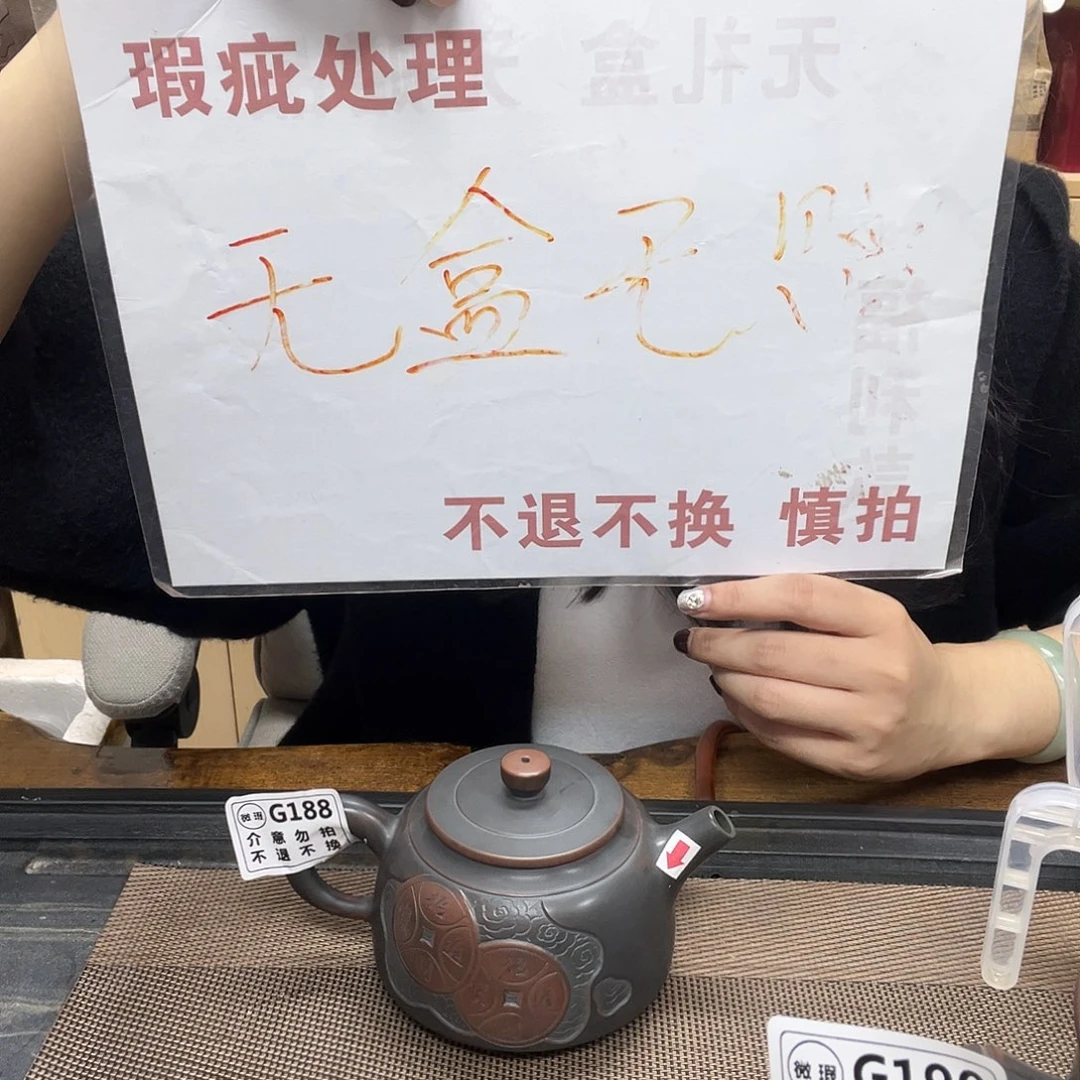 瑕疵处理
无盒无
不退不换 慎拍
微瑕 G188
介意勿拍
不退不换
微瑕